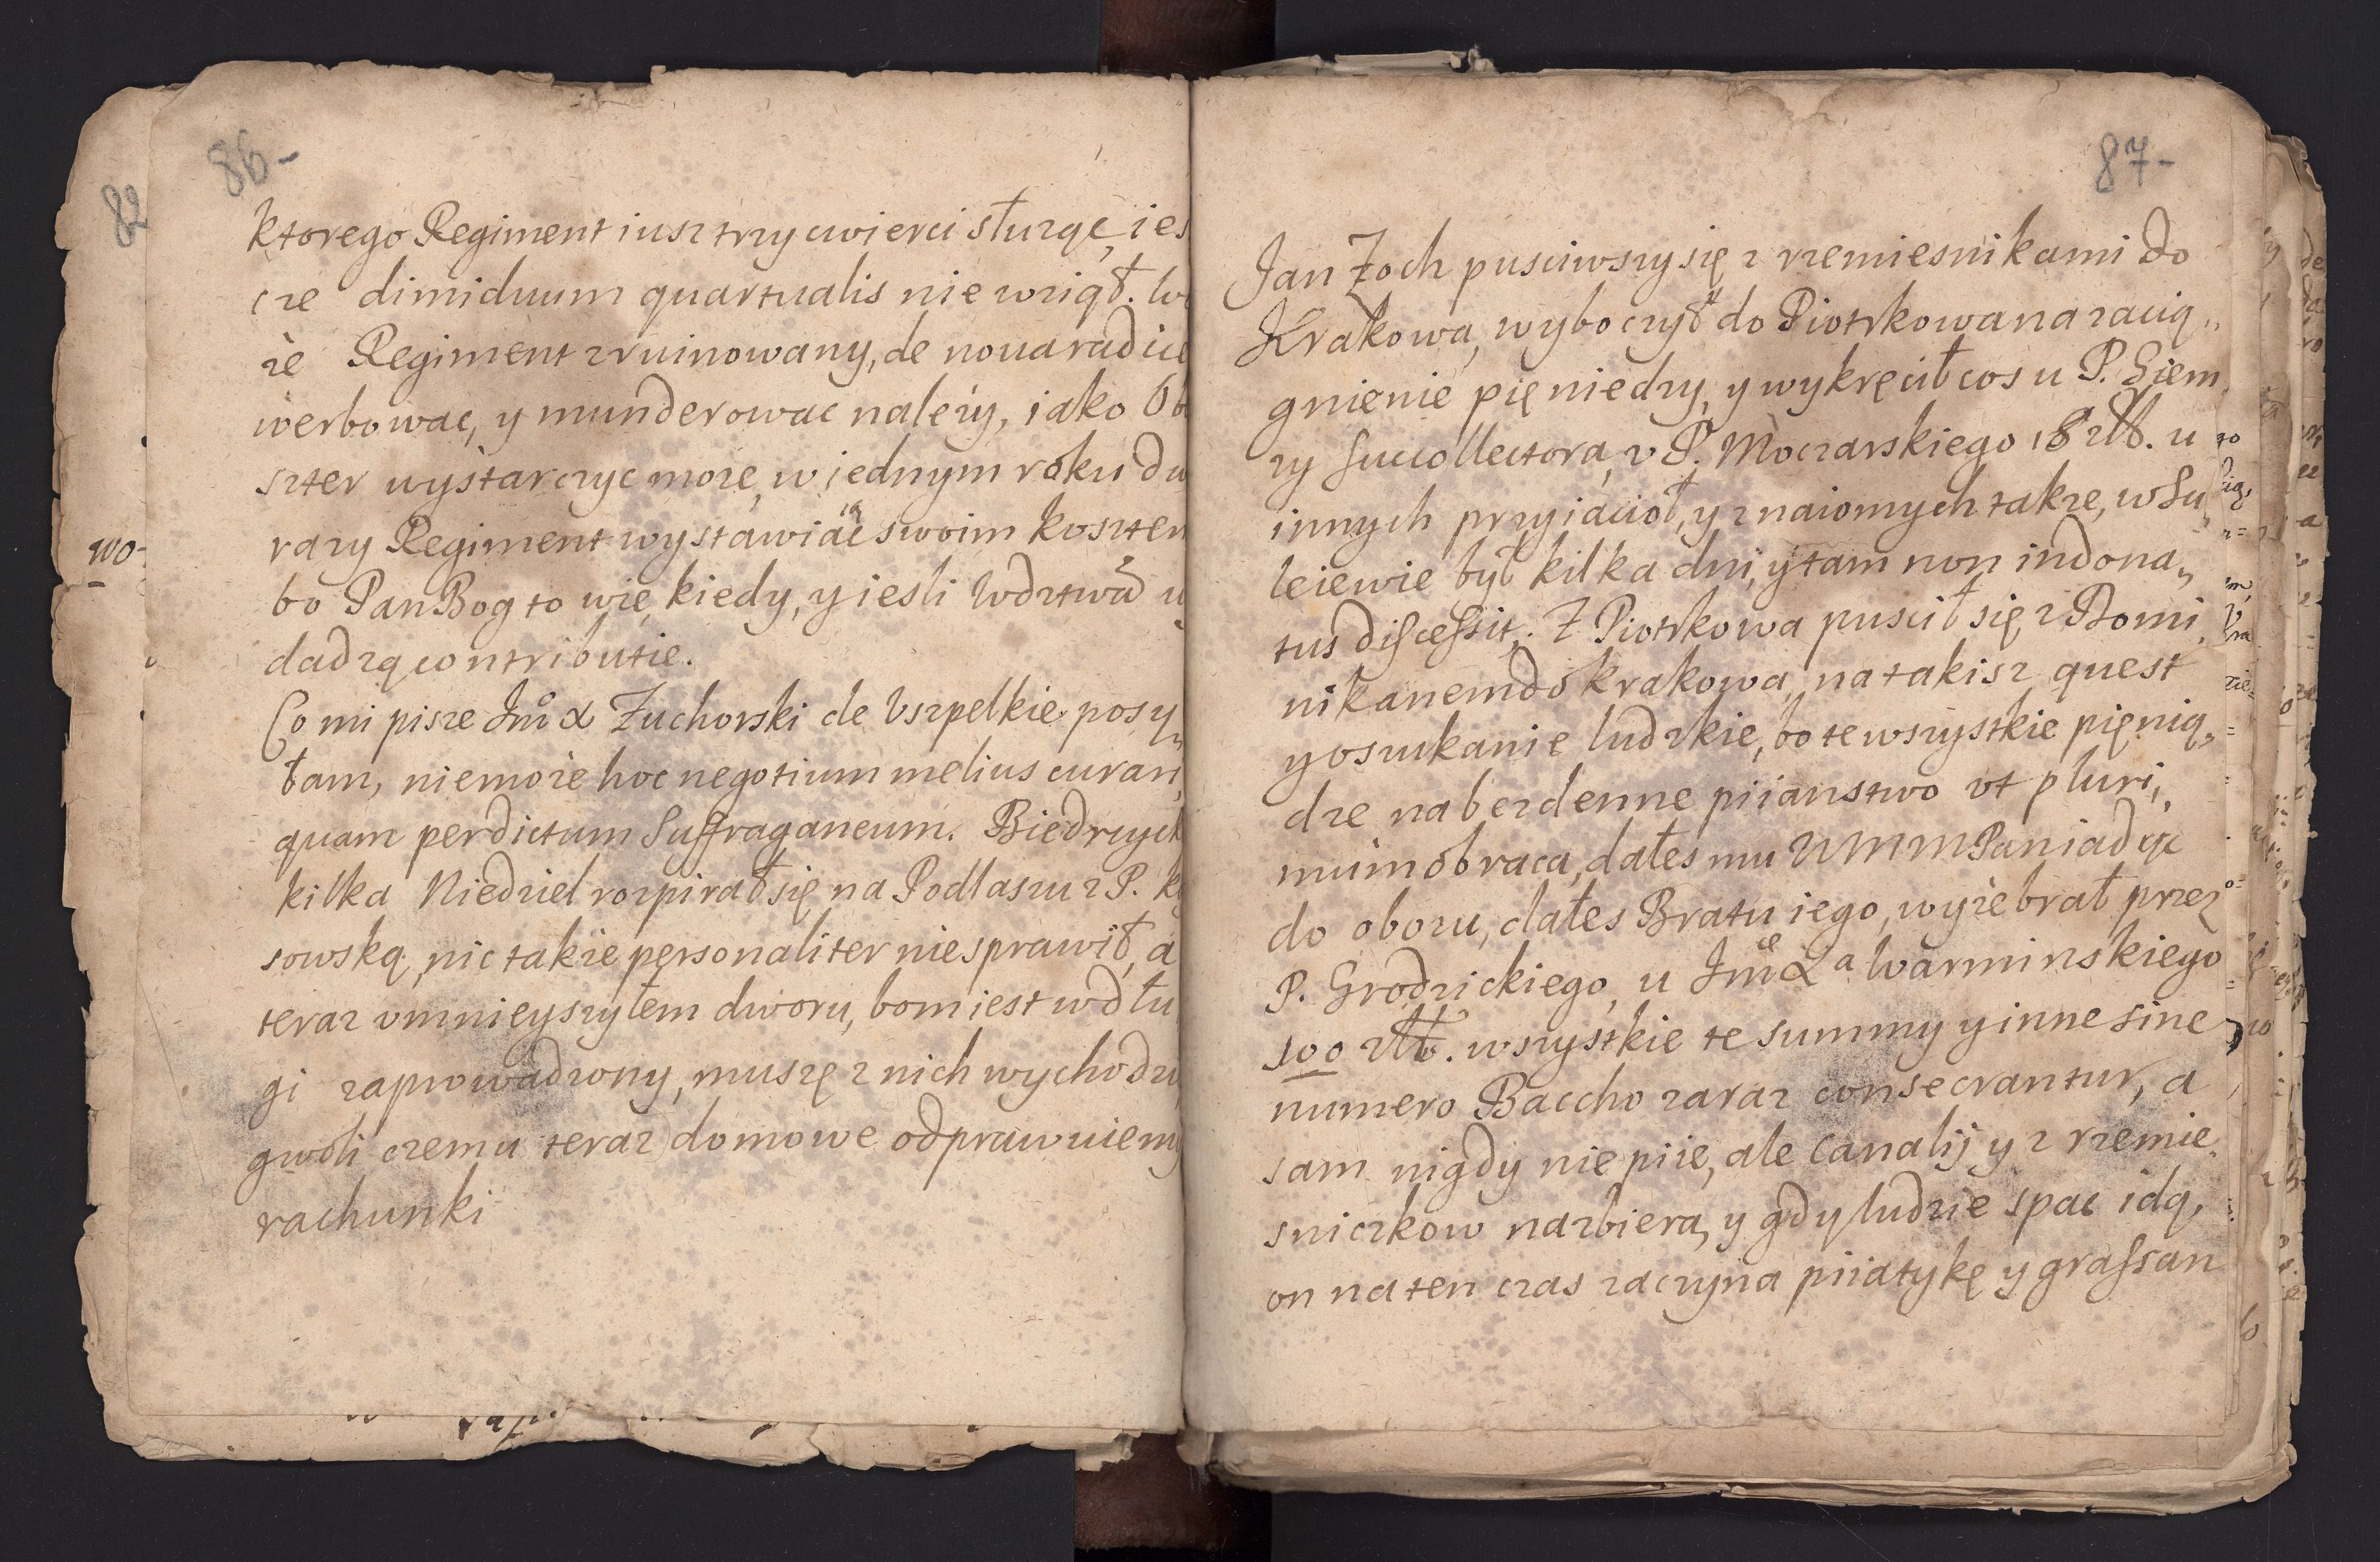 86-
82
ktorego Regiment iusz trzy cwierci służąc, ies
cze dimiduum quartualis nie wziął. W
że Regiment zruinowany, de noua radice
werbowac, y munderowac należy, iako Ob
szter wystarczyc może, w iednym roku dw
razy Regiment wystawiac swoim koszten
bo Pan Bog to wie, kiedy, y iesli Wdztwa w
dadzą contributie.
Co mi pisze Jmx Zuchorski de Vszpelkie posy„
łam, niemoże hoc negotium melius curari,
quam perdictum Suffraganeum. Biedrzyck
kilka Niedziel rozpirał się na Podlaszu z P. k
sowską, nic także personaliter niesprawił, a
teraz vmnieyszyłem dworu, bom iest w dłu
gi zaprowadzony, muszę z nich wychodzi
gwoli czemu teraz domowe odprawuiemy
rachunki
wo-
87-
Jan Zoch pusciwszy się z rzemiesnikami do
Krakowa, wyboczył do Piotrkowa na zacią„
gnienie pięniedzy, y wykręcił cos u P. Giem
zy Succollectora, v P. Moczarskiego 18 zł. u
innych przyiacioł, y znaiomych także, w Su„
leiewie był kilka dni, y tam non indona„
tus discessit. Z Piotrkowa puscił się z Domi
nikanem do Krakowa, na takisz quest
y oszukanie ludzkie, bo te wszystkie pięnią„
dze na bezdenne piianstwo vt pluri„
mum obraca, dałes mu WMMPan iadąc
do obozu, dałes Bratu iego, wyżebrał przez
P. Grodzickiego, u Jmx a Warminskiego
100 zł. wszystkie te summy y inne sine
numero Baccho zaraz consecrantur, a
sam nigdy niepiie, ale Canalij y z rzemie
sniczkow nazbiera, y gdy ludzie spac idą,
on na ten czas zaczyna piiatykę y grassan